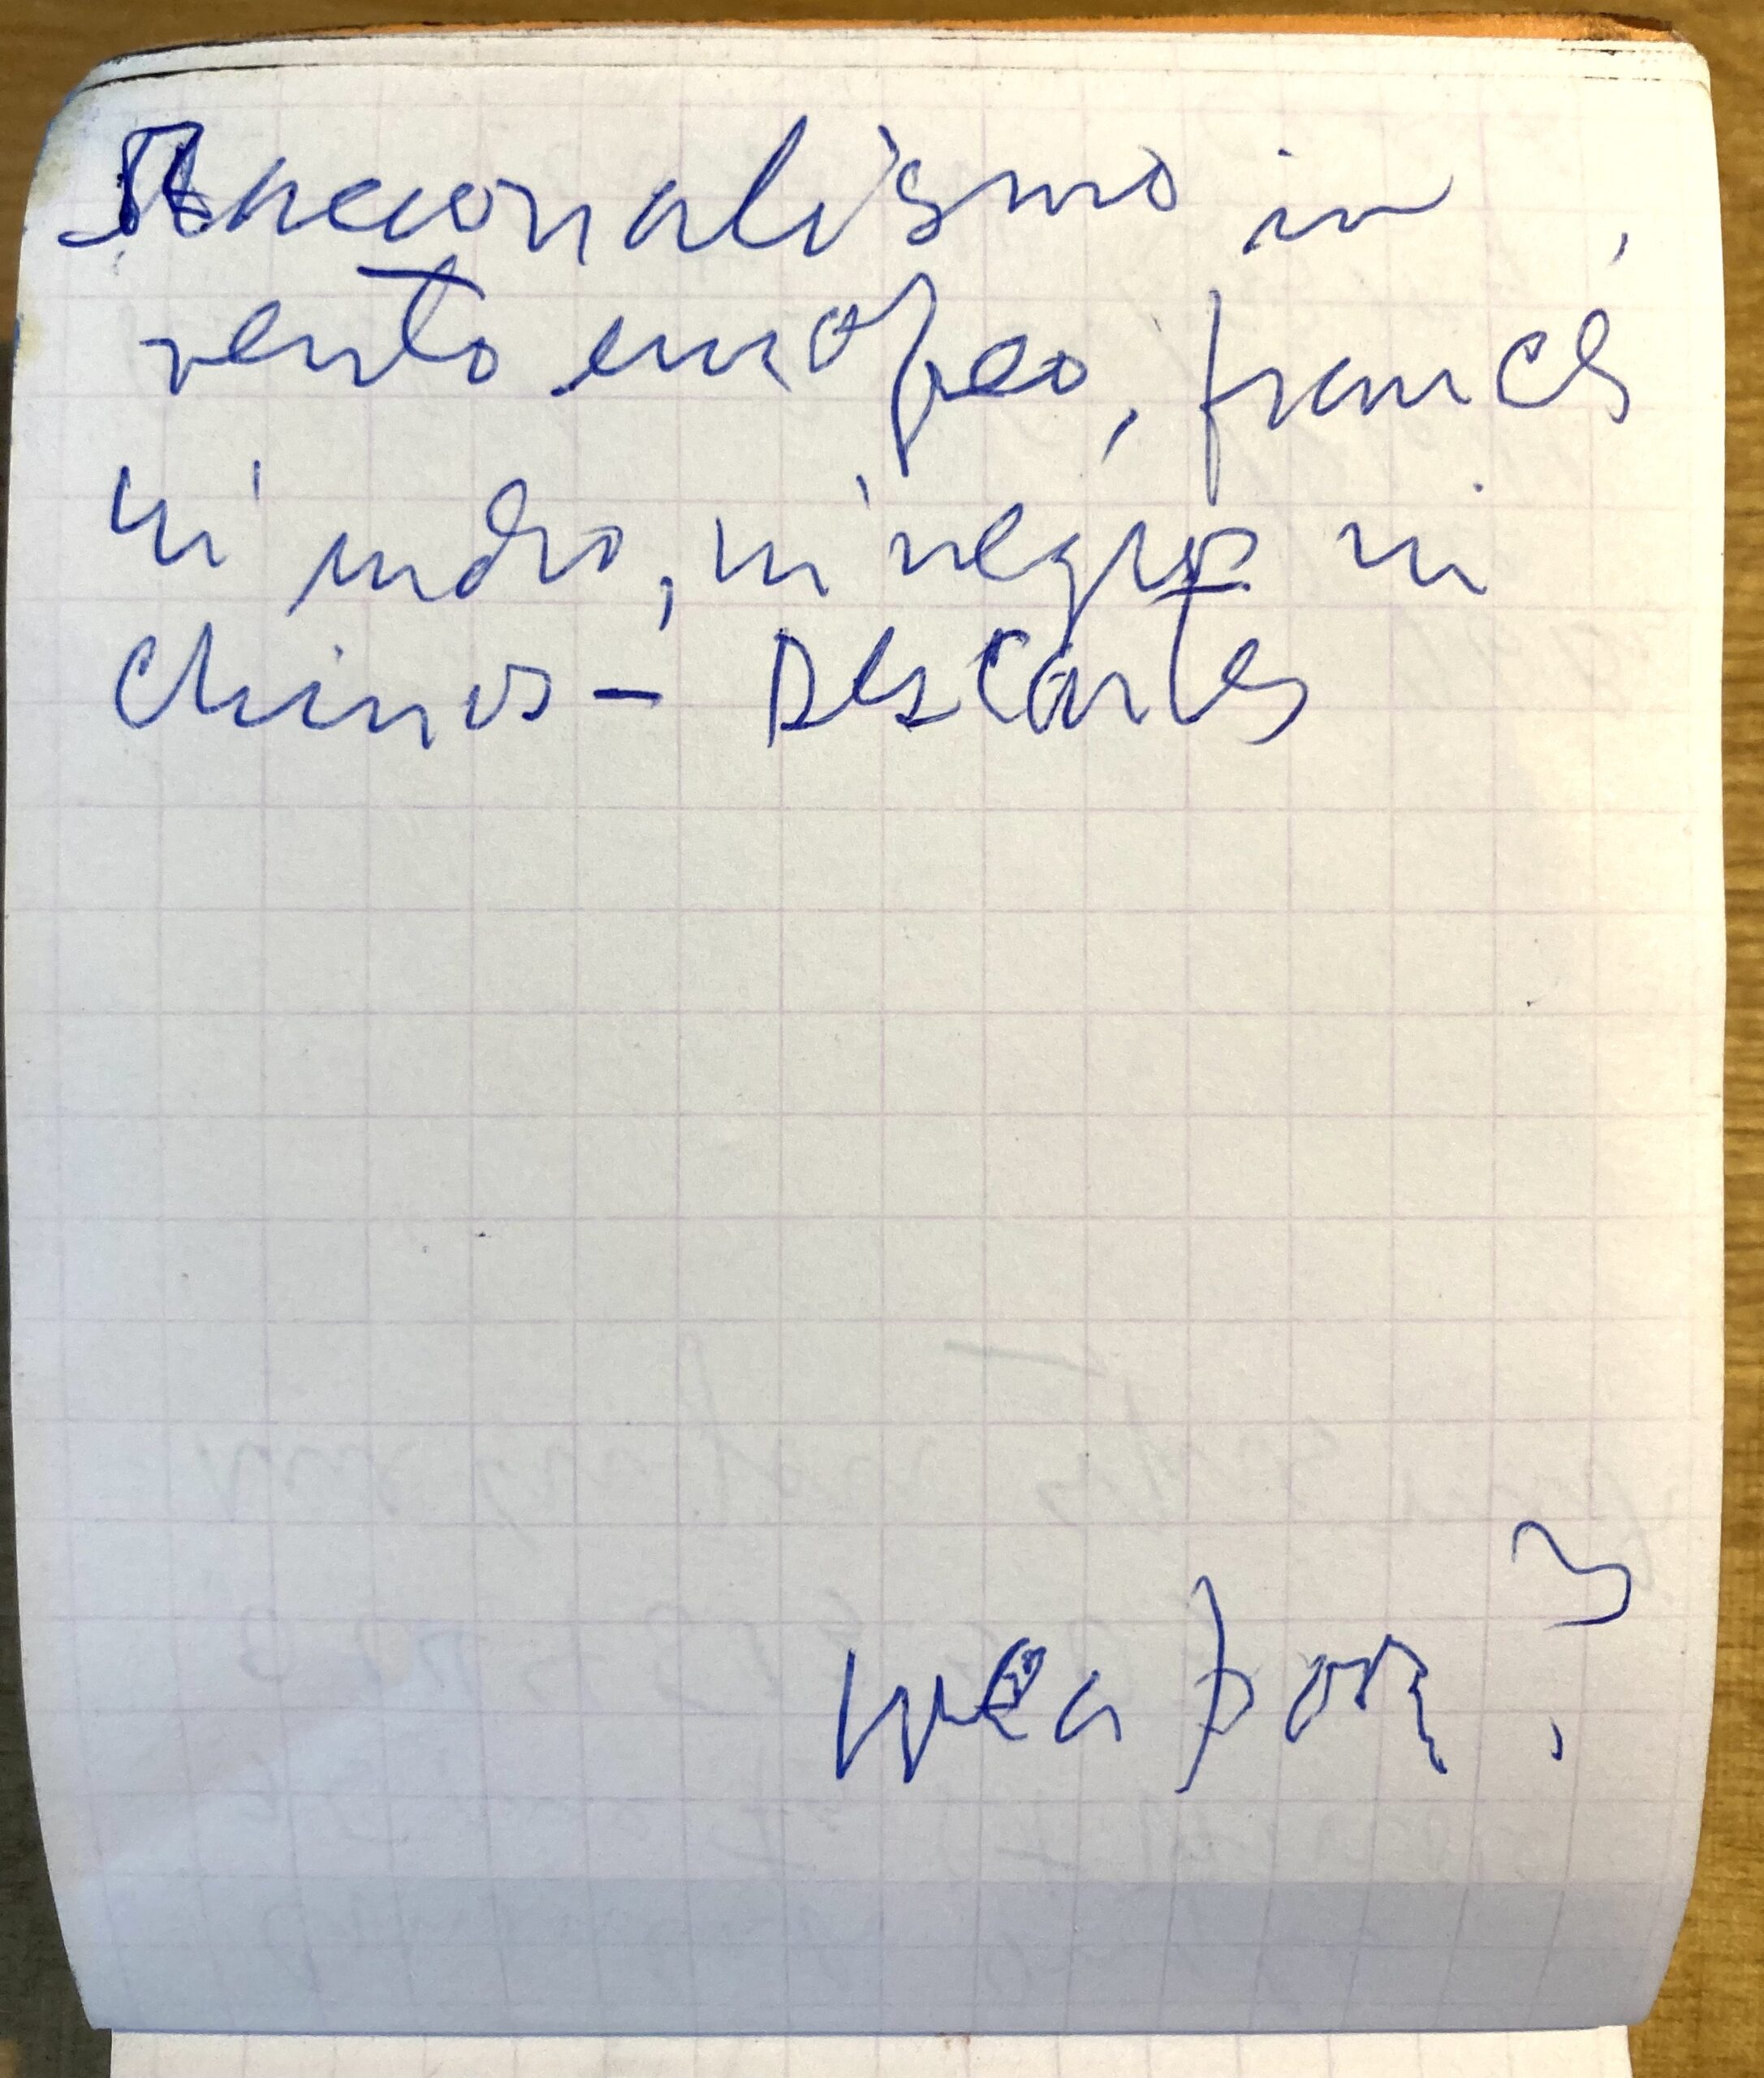 Racionalismo in
vento europeo, francés
ni indio, ni negro ni
chinos - Descartes
weapon?